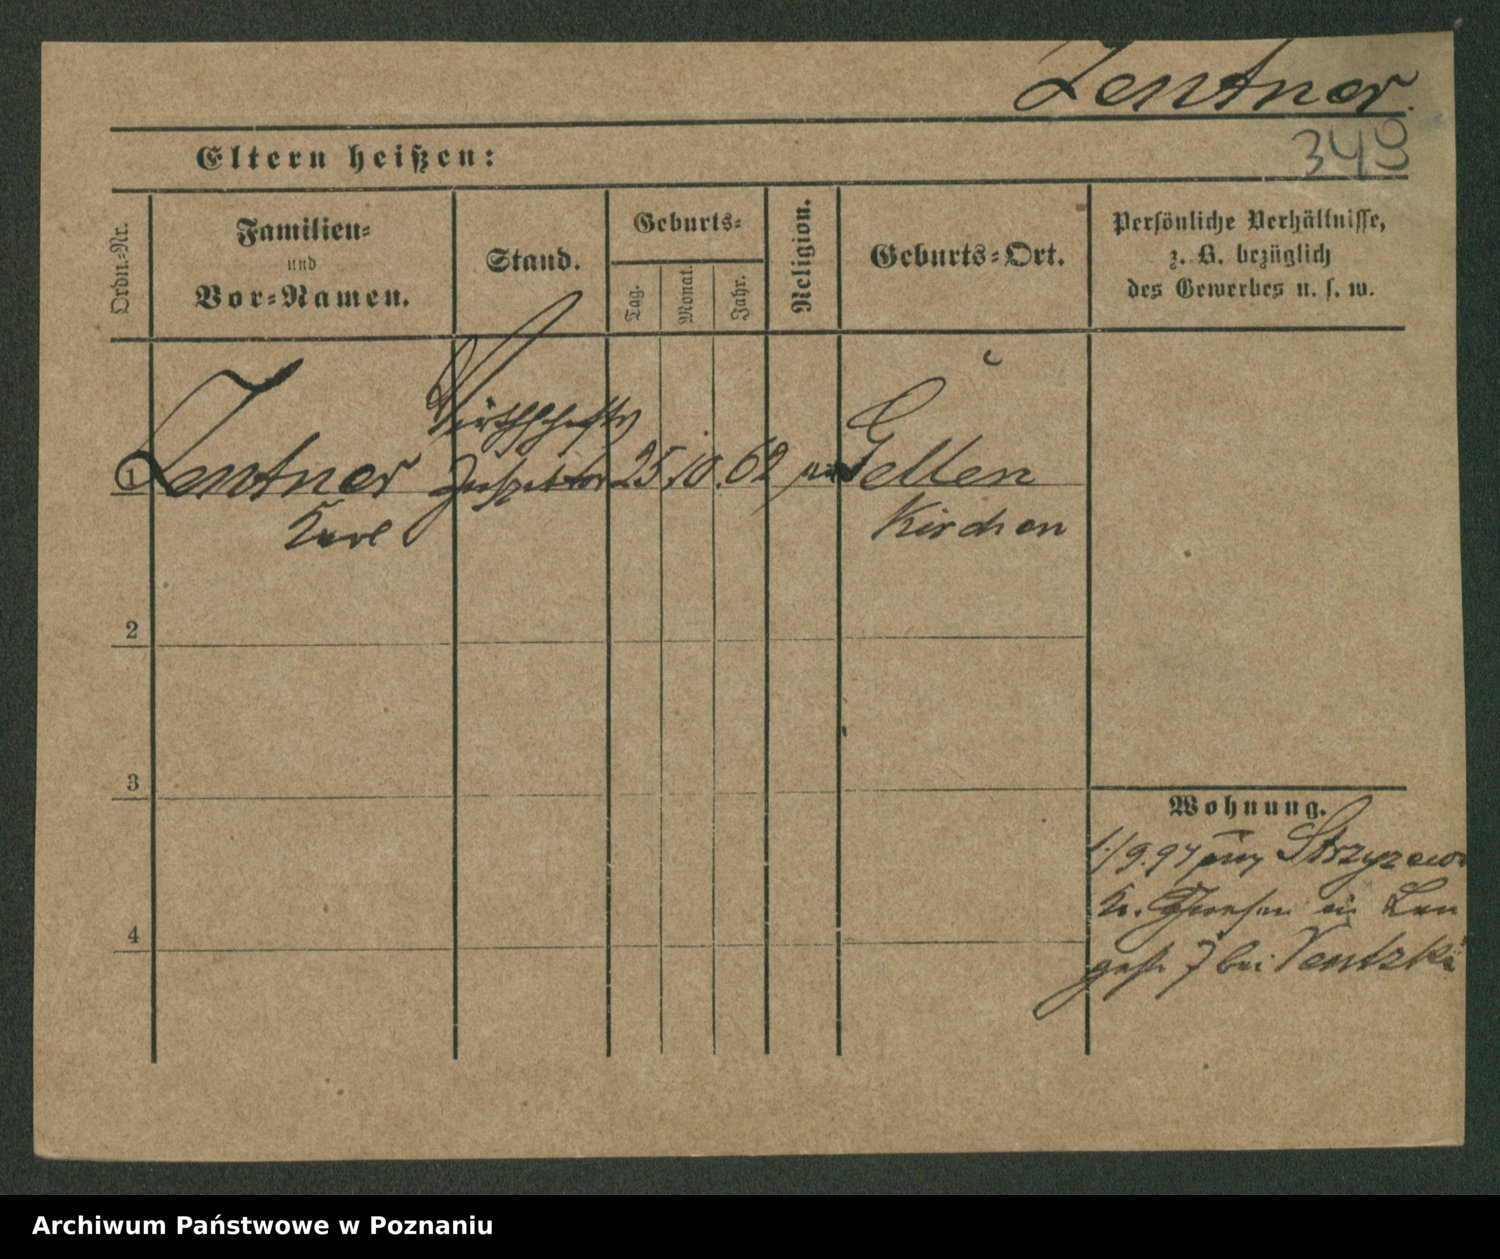 Zentner.
349
Eltern heißen:
Ordn.-Nr.
Familien-
und
Vor-Namen.
Stand.
Geburts-
Tag.
Monat.
Jahr.
Religion.
Geburts-Ort.
Persönliche Verhältnisse,
z. B. bezüglich
des Gewerbes u. s. w.
Wirthschafts
1 Zentner Inspektor 25. 10. 62 Gellen
Karl Kirchen
2
3
Wohnung.
1./9.97 Strzyzewo
Kr. Gnesen in
4
7 bei Ventzki
Archiwum Państwowe w Poznaniu